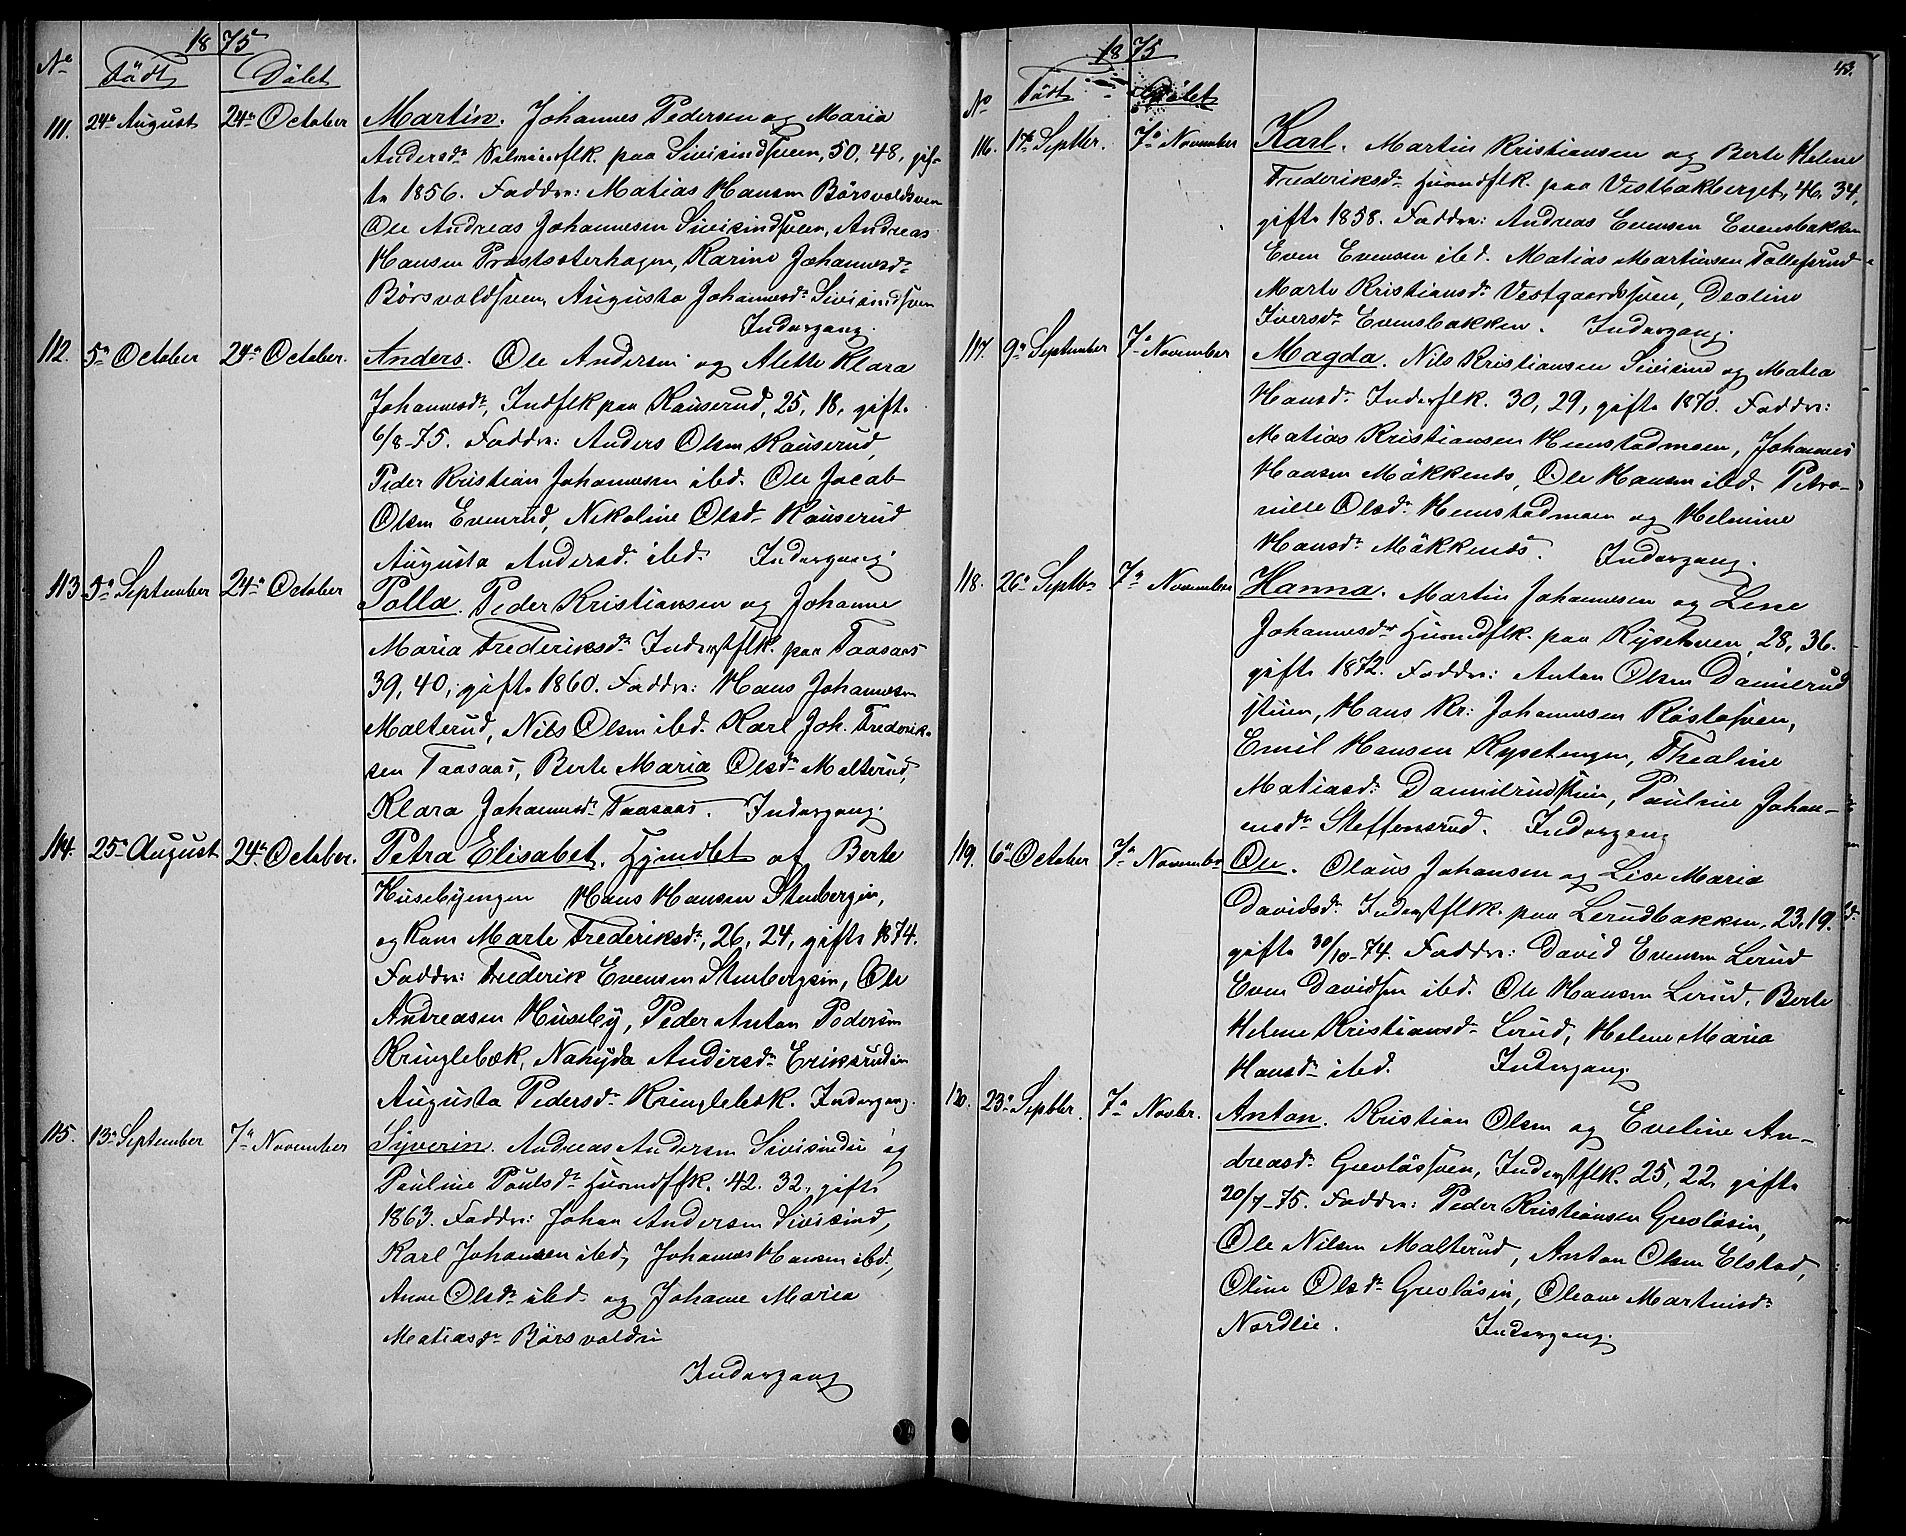 1875
No Födt Döbt
111. 24de August 24de October Martin. Johannes Pedersen og Maria
Andersdr. paa Sivesindsveen, 50, 48, gif-
te 1856. Faddre: Matias Hansen Börsvoldsveen
Ole Andreas Johannesen Sivesindsveen, Andreas
Hansen Prestsæterhagen, Karine Johannesdr.
Börsvoldsveen, Augusta Johannesdr. Sivesindsveen
Indergang.
112. 5te October 24de October. Anders. Ole Andersen og Alette Klara
Johannesdr., Indflk paa Kauserud, 25, 18, gifte
6/8-75. Faddre: Anders Olsen Kauserud,
Peder Kristian Johannesen ibd. Ole Jacob
Olsen Evenrud, Nikoline Olsdr. Kauserud
Augusta Andersdr. ibd. Indergang.
113. September 24de October Polla. Peder Kristiansen og Johanne
Maria Frederiksdr. Inderstflk. paa Taasaas
39, 40, gifte 1860. Faddre: Hans Johannesen
Malterud, Nils Olsen ibd. Karl Joh. Frederik-
sen Taasaas, Berte Maria Olsdr. Malterud,
Klara Johannesdr. Taasaas. Indergang.
114. 25de August 24de October. Petra Elisabet. Hjmdbt af Berte
Husebyengen Hans Hansen Stenbergein,
og Kone Marte Frederiksdr., 26, 24, gifte 1874.
Faddre: Frederik Evensen Stenbergein, Ole
Andreasen Huseby, Peder Anton Pedersen
Kringlebæk, Andersdr. Eriksrudein
Augusta Pedersdr. Kringlebæk. Indergang.
115. 13de September 7de November Syverin. Andreas Andersen Sivesindei og
Pauline Poulsdr. Husmdflk. 42. 32, gifte
1863. Faddre: Johan Andersen Sivesind,
Karl Johansen ibd, Johannes Hansen ibd.,
Anne Olsdr. ibd. og Johanne Maria
Matiasdr. Börsvoldei
Indergang
1875 43.
No Födt Döbt
116. 17de Septbr. 7de November Karl. Martin Kristiansen og Berte Helene
Frederiksdr. Husmdflk. paa Vestbakberget, 46, 34,
gifte 1858. Faddre: Andreas Evensen Evensbakken
Even Evensen ibd. Matias Martinsen Tollefsrud
Marte Kristiansdr. Vestgaardsveen, Deoline
Iversdr. Evensbakken. Indergang.
117. 9de September 7de November Magda. Nils Kristiansen Sivesind og Matea
Hansdr. Inderstflk. 30, 29, gifte 1870. Faddre:
Matias Kristiansen Hemstadmoen, Johannes
Hansen Mökkenes, Ole Hansen ibd. Petro-
nille Olsdr. Hemstadmoen og Helmine
Hansdr. Mökkenes. Indergang.
118. 26de Septbr 7de November Hanna. Martin Johannesen og Lene
Johannesdr. Husmdflk. paa 28, 36.
gifte 1872. Faddre: Anton Olsen Danielrud
stuen, Hans Kr: Johannesen Röstösveen,
Emil Hansen Thealine
Matiasdr. Danielrudstuen, Pauline Johan-
nesdr. Steffensrud. Indergang
119. 6te October 7de Novembr Ole. Olaus Johansen og Lise Maria
Davidsdr. Inderstflk. paa Lerudbakken, 23, 19.
gifte 30/10-74. Faddre: David Evensen Lerud
Even Davidsen ibd. Ole Hansen Lerud, Berte
Helene Kristiansdr. Lerud, Helene Maria
Hansdr. ibd. Indergang.
120. 23de Septbr. 7de Novbr. Anton. Kristian Olsen og Eveline An-
dreasdr. Grevlössveen, Inderstflk. 25, 22, gifte
20/7-75. Faddre: Peder Kristiansen Grevlösein,
Ole Nilsen Malterud, Anton Olsen Elstad,
Oline Olsdr. Grevlösein, Oleane Martinisdr.
Nordlie. Indergang.